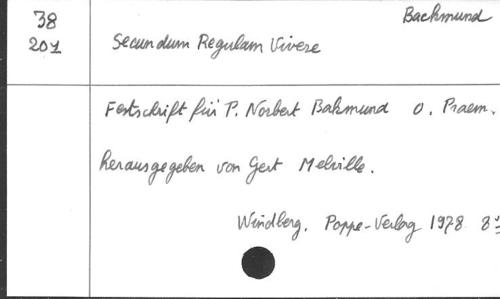 Backmund
38
201
Secundum Regulam Vivere
Festschrift für P. Norbert Bakmund O. Praem.
herausgegeben von Gert Melville.
Windberg, Poppe-Verlag 1978 8°